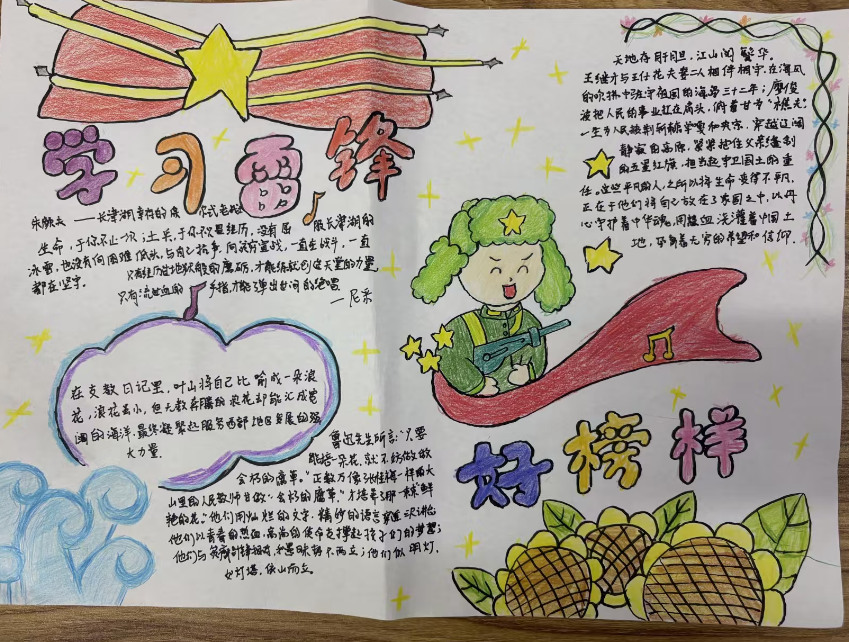 学习雷锋
朱彦夫——长津湖幸存的
服长津湖的
生命,于你不止一次
冰雪,也没有何困难
向贫穷宣战,一直在战斗,一直
都在坚守。
只有经历过地狱般的磨砺,才能练就创造天堂的力量
只有流过血的手指,才能弹出世间的绝唱
—尼采
在支教日记里,叶山将自己比喻成一朵浪
花,浪花虽小,但无数奔腾的浪花却能汇成宽
阔的海洋.最终凝聚起服务西部地区发展的强
大力量.
鲁迅先生所言:"只要
能培一朵花,就不妨做做
会朽的腐草。"正数万像张桂梅一样的大
山里的人民教师甘做"会朽的腐草,"才培养
艳的花。他们用灿烂的文字.精妙的语言
他们以青春的热血,高尚的使命支撑起孩子们的梦想;
他们与贫瘠
他们似明灯,
如灯塔,依山而立。
天地存肝胆,江山阅鬓华。
王继才与王仕花夫妻二人相伴相守,在海风
的吹拂中驻守祖国的海岛三十二年;廖俊
波把人民的事业扛在肩头,俯首甘
一生为人民
穿越辽阔
静寂的高原,紧紧
的五星红旗,担当起守卫国土的重
任。这些平凡的人,之所以将生命支撑不平凡,
正在于他们将自己放在了家国之中,以丹
心守护着中华魂,用热血浇灌着中国土
地,孕育着无穷的希望和信仰.
好榜样